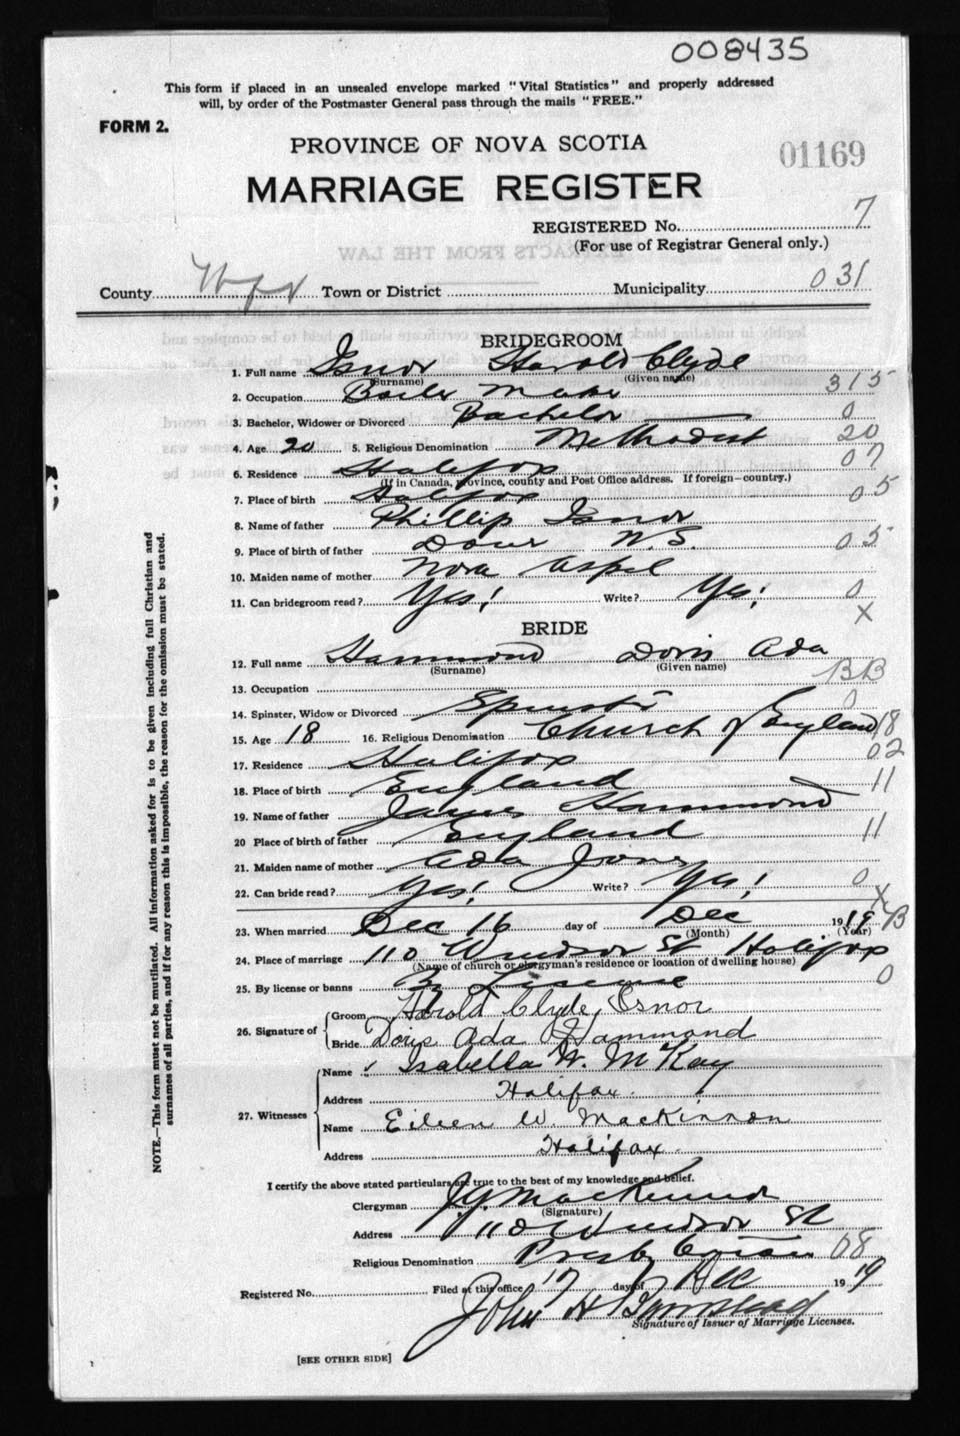 008435
This form if placed in an unsealed envelope marked "Vital Statistics" and properly addressed
will, by order of the Postmaster General pass through the mails "FREE."
FORM 2.
PROVINCE OF NOVA SCOTIA
01169
MARRIAGE REGISTER
REGISTERED No. 7
(For use of Registrar General only.)
County Hfx Town or District Municipality 031
BRIDEGROOM
1. Full name Isnor Harold Clyde
(Surname) (Given name)
2. Occupation Boiler Maker 315
3. Bachelor, Widower or Divorced Bachelor 0
4. Age 20 5. Religious Denomination Methodist 20
6. Residence Halifax 07
(If in Canada, province, county and Post Office address. If foreign—country.)
7. Place of birth Halifax 05
8. Name of father Phillip Isnor
9. Place of birth of father N.S. 05
10. Maiden name of mother Nora Aspel
11. Can bridegroom read? Yes! Write? Yes! 0
X
BRIDE
12. Full name Hammond Doris Ada
(Surname) (Given name)
13. Occupation BB
14. Spinster, Widow or Divorced Spinster 0
15. Age 18 16. Religious Denomination Church of England 18
17. Residence Halifax 02
18. Place of birth England 11
19. Name of father James Hammond
20 Place of birth of father England 11
21. Maiden name of mother Ada Jones
22. Can bride read? Yes! Write? Yes! 0
X
23. When married Dec 16 day of Dec 1919 B
(Month) (Year)
24. Place of marriage 110 Windsor St Halifax
(Name of church or clergyman's residence or location of dwelling house)
25. By license or banns By License 0
26. Signature of Groom Harold Clyde Isnor
Bride Doris Ada Hammond
27. Witnesses Name Isabella W. McKay
Address Halifax.
Name Eileen W. MacKinnon
Address Halifax.
I certify the above stated particulars are true to the best of my knowledge and belief.
Clergyman
(Signature)
Address 110 Windsor St
Religious Denomination Presbyterian 08
Registered No. Filed at this office 17 day of Dec 1919
John H
Signature of Issuer of Marriage Licenses.
[SEE OTHER SIDE]
NOTE.—This form must not be mutilated. All information asked for is to be given including full Christian and
surnames of all parties, and if for any reason this is impossible, the reason for the omission must be stated.